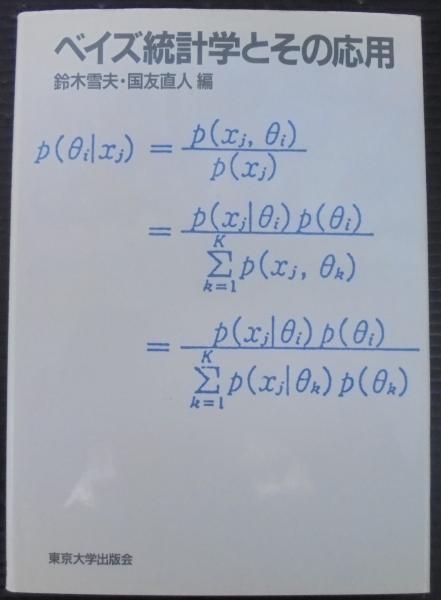 ベイズ統計学とその応用
鈴木雪夫・国友直人 編
p(θᵢ|xⱼ) = p(xⱼ, θᵢ) / p(xⱼ)
= p(xⱼ|θᵢ) p(θᵢ) / ∑_{k=1}^{K} p(xⱼ, θₖ)
= p(xⱼ|θᵢ) p(θᵢ) / ∑_{k=1}^{K} p(xⱼ|θₖ) p(θₖ)
東京大学出版会